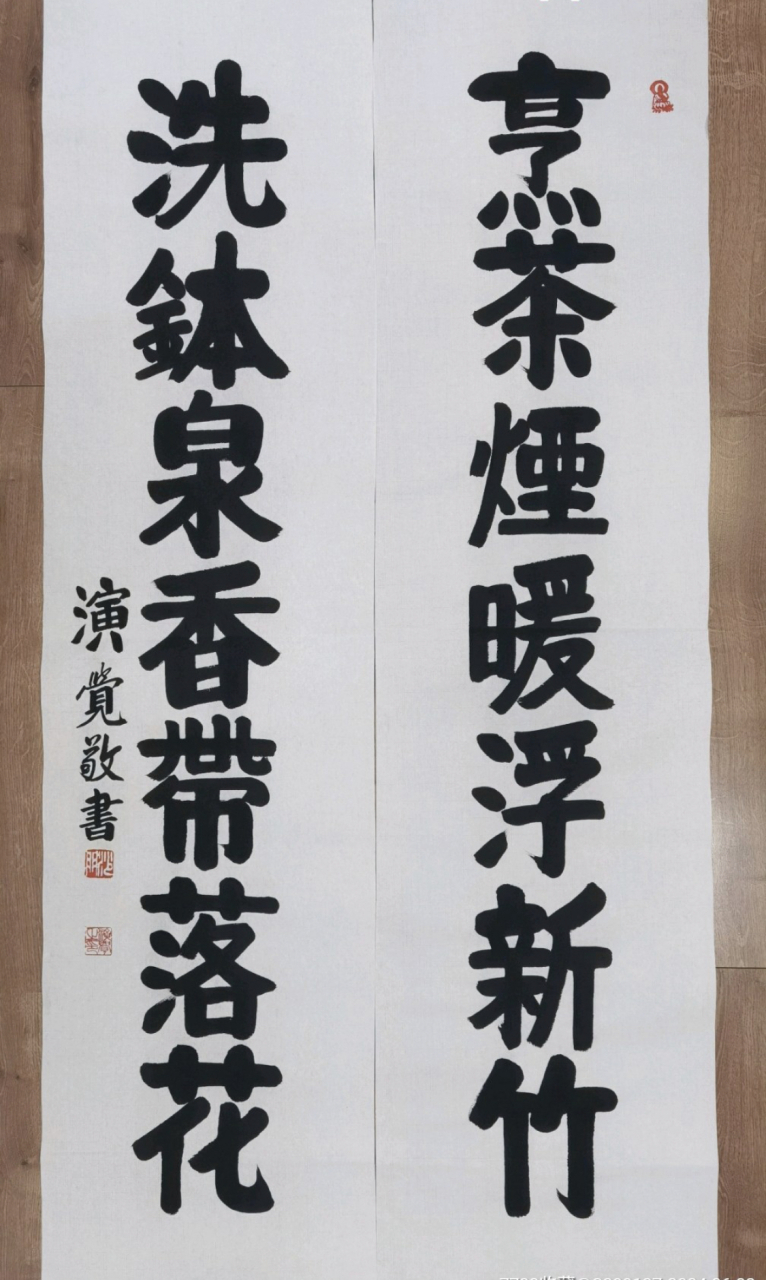 烹茶煙暖浮新竹
洗鉢泉香帶落花
演覺敬書